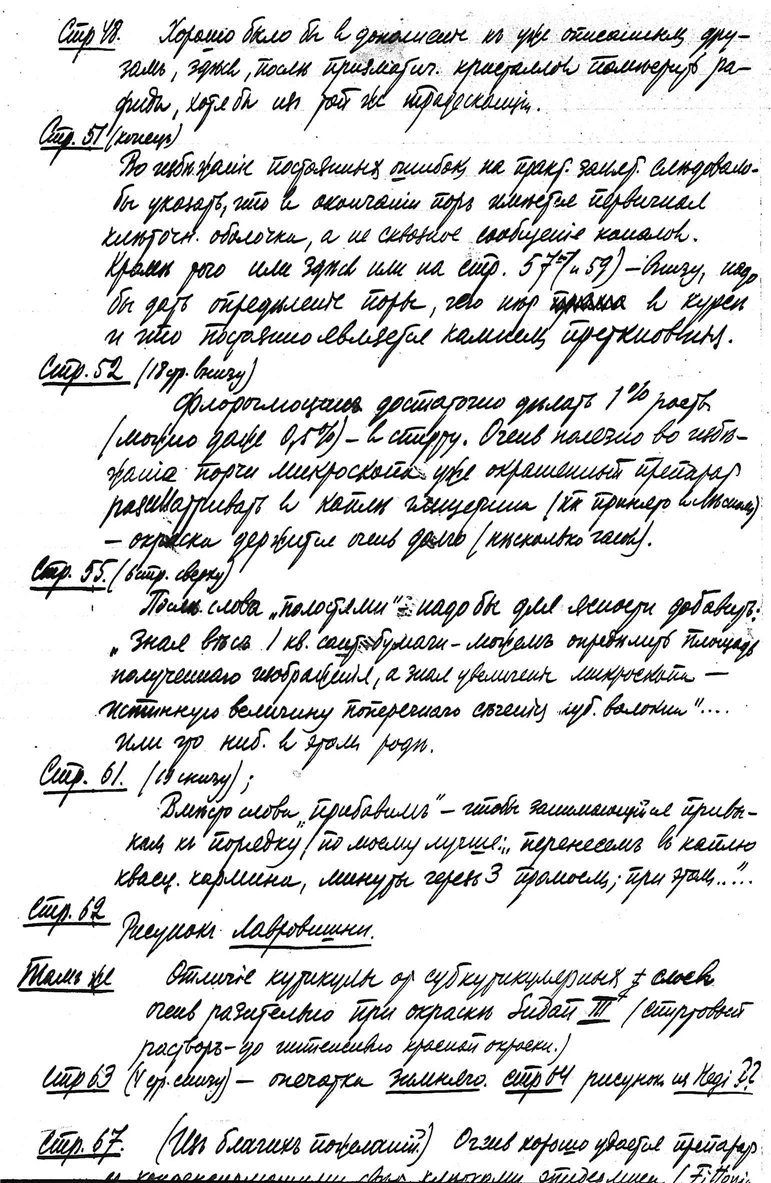 Стр 48. Хорошо было бы в дополненіе къ уже описаннымъ дру-
замъ, здѣсь, послѣ призматич. кристалловъ помѣстить ра-
фиды, хотя бы изъ той же традесканціи.
Стр. 51 (конецъ)
Во избѣжаніе постоянныхъ ошибокъ на практ. занят. слѣдовало-
бы указать, что въ окончаніи поръ имѣется первичная
клѣточн. оболочка, а не сквозное сообщеніе каналовъ.
Кромѣ того или здѣсь или на стр. 57 (и 59) – внизу, надо
бы дать опредѣленіе поры, чего нѣтъ въ курсѣ
и что постоянно является камнемъ преткновенія.
Стр. 52 (18 стр. внизу)
Флороглюцинъ достаточно дѣлать 1% раств
(можно даже 0,5%) – въ спирту. Очень полезно во избѣ-
жаніе порчи микроскопа уже окрашенный препаратъ
разсматривать въ каплѣ глицерина
– окраска держится очень долго (нѣсколько часовъ).
Стр. 55. (6 стр. сверху)
Послѣ слова „полостями" – надо бы для ясности добавить:
„Зная вѣсъ 1 кв. сант. бумаги – можемъ опредѣлить площадь
полученнаго изображенія, а зная увеличеніе микроскопа –
истинную величину поперечнаго сѣченія луб. волокна"....
Или что ниб. въ этомъ родѣ.
Стр. 61. (19 снизу);
Вмѣсто слова „прибавимъ" – чтобы занимающійся привы-
калъ къ порядку (по моему лучше: „перенесемъ въ каплю
квасц. кармина, минуты черезъ 3 промоемъ; при этомъ..."..
Стр. 62 Рисунокъ Лавровишни.
Тамъ же Отличіе кутикулы от субкутикулярныхъ слоевъ
очень разительно при окраскѣ Суданъ III (спиртовой
растворъ – до интенсивно красной окраски.)
Стр 63 (4 стр. снизу) – опечатка Зимняго. Стр 64 рисунокъ изъ
Стр. 67. (Изъ благихъ пожеланій.) Очень хорошо удается препаратъ